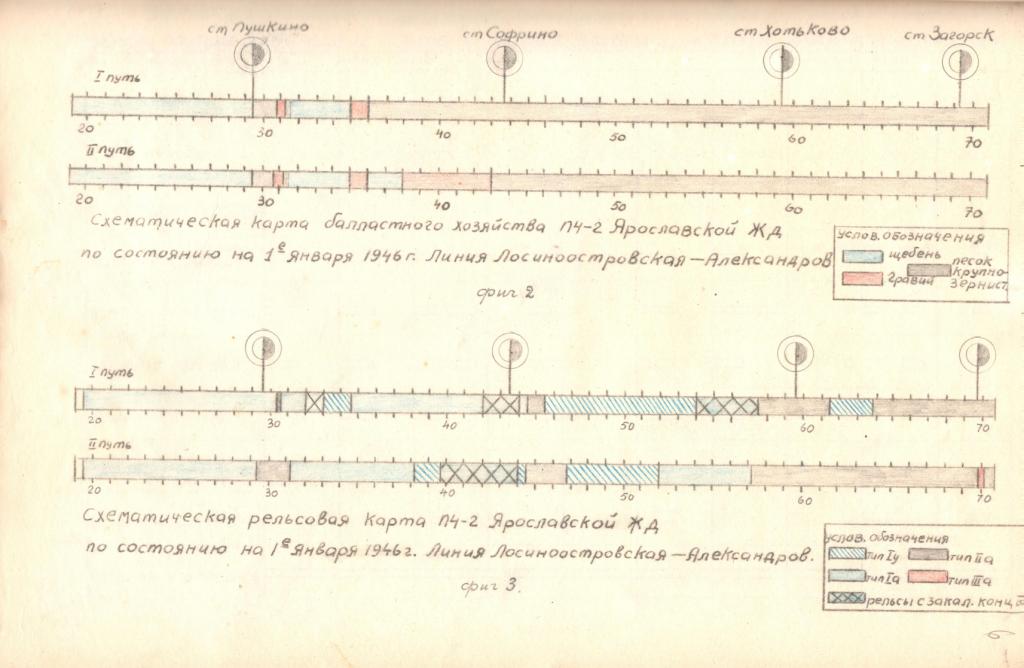 ст Пушкино ст Софрино ст Хотьково ст Загорск
I путь
20 30 40 50 60 70
II путь
20 30 40 50 60 70
Схематическая карта балластного хозяйства ПЧ-2 Ярославской ЖД
по состоянию на 1е Января 1946 г. Линия Лосиноостровская — Александров
фиг 2
услов. обозначения
щебень
гравий
песок
крупно-
зернист.
I путь
20 30 40 50 60 70
II путь
20 30 40 50 60 70
Схематическая рельсовая карта ПЧ-2 Ярославской ЖД
по состоянию на 1е Января 1946 г. Линия Лосиноостровская — Александров.
фиг 3.
услов. обозначения
тип Iу тип IIа
тип Iа тип IIIа
рельсы с закал. конц.
6